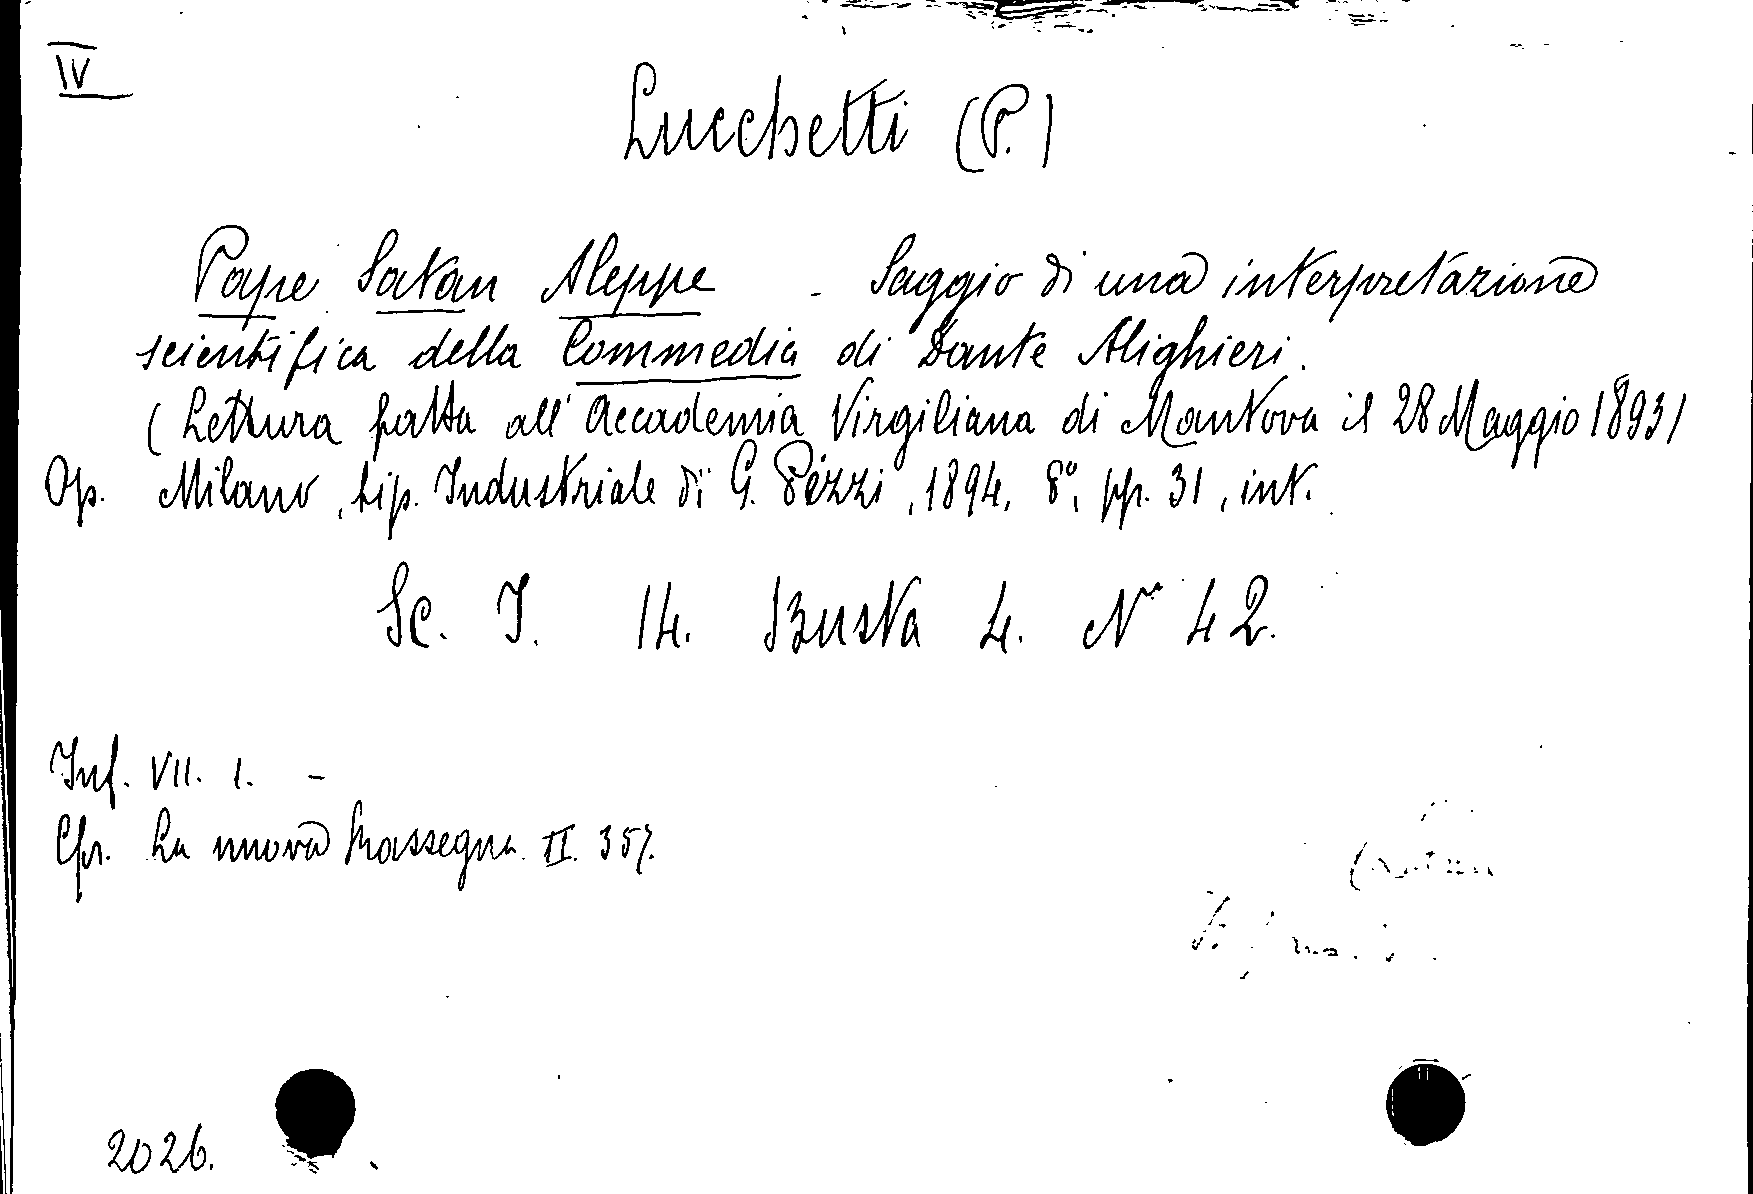 IV
Lucchetti (P.)
Pape Satan Aleppe - Saggio di una interpretazione
scientifica della Commedia di Dante Alighieri.
(Lettura fatta all'Accademia Virgiliana di Mantova il 28 Maggio 1893)
Op. Milano, tip. Industriale di G. Pizzi, 1894, 8°, pp. 31, int.
Sc. I. 14. Busta 4. N° 42.
Inf. VII. 1. -
Cfr. La nuova Rassegna II. 357.
2026.